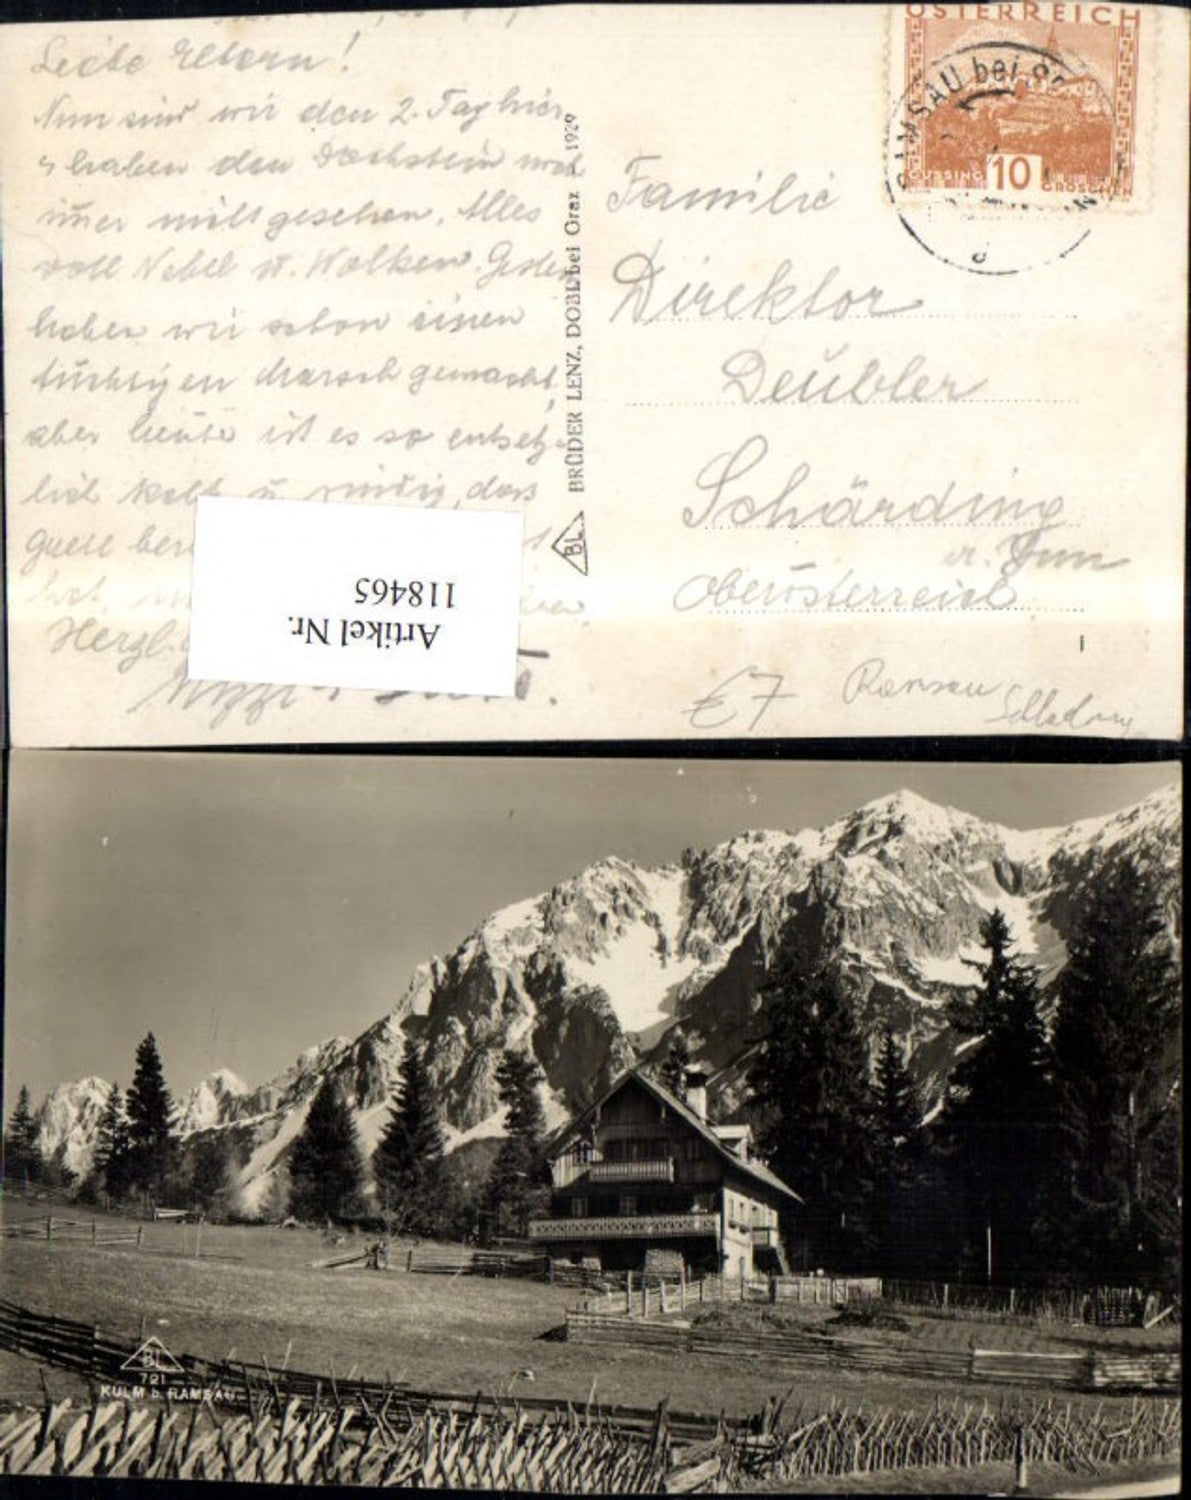 Liebe Eltern!
Nun sind wir den 2. Tag hier
u haben den Dachstein noch
immer nicht gesehen. Alles
voll Nebel u. Wolken. Gestern
haben wir schon einen
tüchtigen Marsch gemacht,
aber heute ist es so entsetz-
lich kalt u. windig, dass
hat
Herzl.
BRÜDER LENZ, DOBL bei Graz 1929
BL
ÖSTERREICH
GÜSSING 10 GROSCHEN
RAMSAU bei
d
Familie
Direktor
Deubler
Schärding
a. Inn
Oberösterreich
€7 Ramsau
Schladming
Artikel Nr.
118465
BL
721
KULM b. RAMSAU